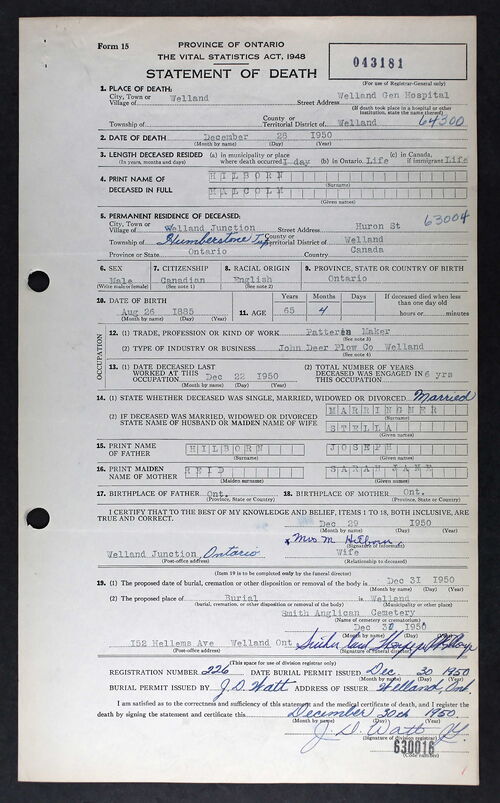 Form 15
PROVINCE OF ONTARIO
THE VITAL STATISTICS ACT, 1948
STATEMENT OF DEATH
043181
(For use of Registrar-General only)
1. PLACE OF DEATH:
City, Town or Village of Welland Street Address Welland Gen Hospital
(If death took place in a hospital or other institution, state the name thereof)
Township of County or Territorial District of Welland 64300
2. DATE OF DEATH December 28 1950
(Month by name) (Day) (Year)
3. LENGTH DECEASED RESIDED (a) in municipality or place where death occurred 1 day (b) in Ontario Life (c) in Canada, if immigrant Life
(In years, months and days)
4. PRINT NAME OF DECEASED IN FULL HILBORN
(Surname)
MALCOLM
(Given names)
5. PERMANENT RESIDENCE OF DECEASED: 63004
City, Town or Village of Welland Junction Street Address Huron St
Township of Humberstone Twp County or Territorial District of Welland
Province or State Ontario Country Canada
6. SEX 7. CITIZENSHIP 8. RACIAL ORIGIN 9. PROVINCE, STATE OR COUNTRY OF BIRTH
Male Canadian English Ontario
(Write male or female) (See note 1) (See note 2)
10. DATE OF BIRTH 11. AGE Years Months Days If deceased died when less than one day old
Aug 26 1885 65 4 hours or minutes
(Month by name) (Day) (Year)
OCCUPATION
12. (1) TRADE, PROFESSION OR KIND OF WORK Pattern Maker
(See note 3)
(2) TYPE OF INDUSTRY OR BUSINESS John Deer Plow Co Welland
(See note 4)
13. (1) DATE DECEASED LAST WORKED AT THIS OCCUPATION Dec 22 1950 (2) TOTAL NUMBER OF YEARS DECEASED WAS ENGAGED IN THIS OCCUPATION 6 yrs
14. (1) STATE WHETHER DECEASED WAS SINGLE, MARRIED, WIDOWED OR DIVORCED Married
(2) IF DECEASED WAS MARRIED, WIDOWED OR DIVORCED STATE NAME OF HUSBAND OR MAIDEN NAME OF WIFE MARRINGNER
(Surname)
STELLA
(Given names)
15. PRINT NAME OF FATHER HILBORN JOSEPH
(Surname) (Given names)
16. PRINT MAIDEN NAME OF MOTHER REID SARAH JANE
(Maiden surname) (Given names)
17. BIRTHPLACE OF FATHER Ont. 18. BIRTHPLACE OF MOTHER Ont.
(Province, State or Country) (Province, State or Country)
I CERTIFY THAT TO THE BEST OF MY KNOWLEDGE AND BELIEF, ITEMS 1 TO 18, BOTH INCLUSIVE, ARE TRUE AND CORRECT.
Dec 29 1950
(Month by name) (Day) (Year)
x Mrs M. Hilborn
(Signature of informant)
Welland Junction, Ontario Wife
(Post-office address) (Relationship to deceased)
(Item 19 is to be completed only by the funeral director)
19. (1) The proposed date of burial, cremation or other disposition or removal of the body is Dec 31 1950
(Month by name) (Day) (Year)
(2) The proposed place of Burial is Welland
(burial, cremation, or other disposition or removal of the body) (Municipality or other place)
Smith Anglican Cemetery
(Name of cemetery or crematorium)
Dec 30 1950
(Month by name) (Day) (Year)
152 Hellems Ave Welland Ont
(Post-office address) (Signature of funeral director)
(This space for use of division registrar only)
REGISTRATION NUMBER 226 DATE BURIAL PERMIT ISSUED Dec. 30 1950
(Month by name) (Day) (Year)
BURIAL PERMIT ISSUED BY J.D. Watt ADDRESS OF ISSUER Welland, Ont.
I am satisfied as to the correctness and sufficiency of this statement and the medical certificate of death, and I register the death by signing the statement and certificate this December 30th 1950.
(Month by name) (Day) (Year)
J. D. Watt
(Signature of division registrar)
630016
(Code number)